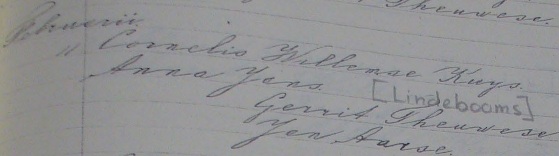 Theuwese.
Februarii.
" Cornelis Willemse Kuys.
Anna Jans. [Lindebooms]
Gerrit Theuwese
Jen Aarse.